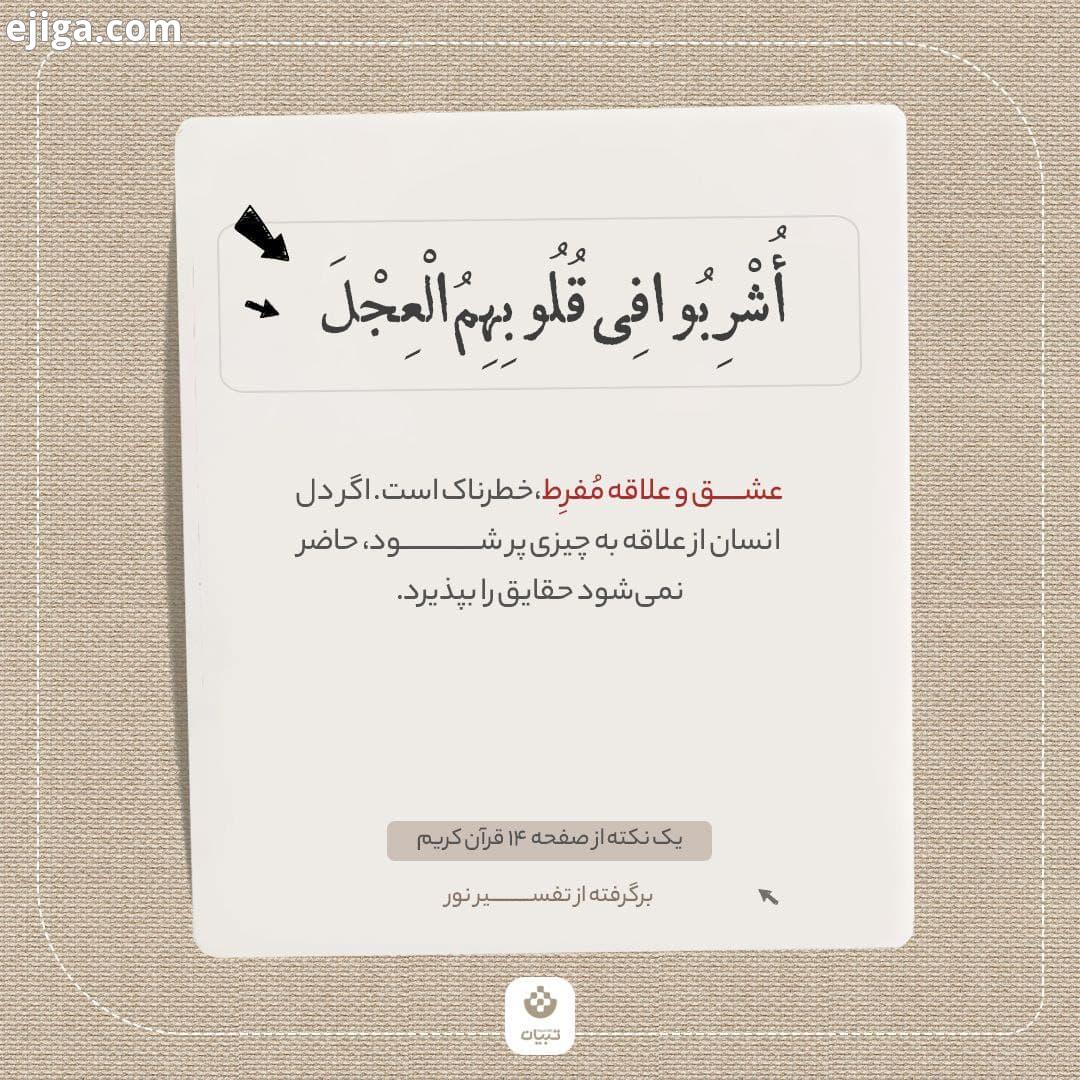 ejiga.com
أُشْرِبُوا فِی قُلُوبِهِمُ الْعِجْلَ
عشق و علاقه مُفرِط،خطرناک است. اگر دل
انسان از علاقه به چیزی پر شود، حاضر
نمی‌شود حقایق را بپذیرد.
یک نکته از صفحه ۱۴ قرآن کریم
برگرفته از تفسیر نور
تبیان